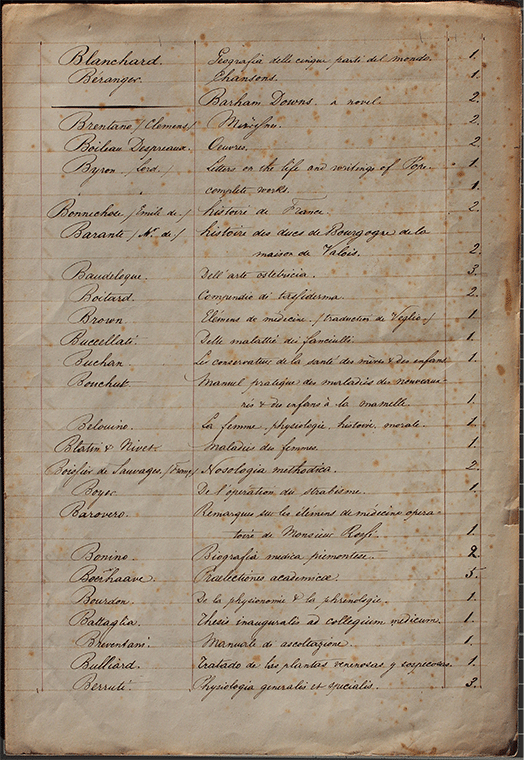 Blanchard. Geografia delle cinque parti del mondo. 1.
Beranger. Chansons. 1.
Barham Downs. a novel. 2.
Brentano / Clemens / 2.
Boileau Despreaux. Oeuvres. 2.
Byron / Lord / Letters on the life and writings of Pope. 1.
complete works. 1.
Bonnechose / Emile de / histoire de France. 2.
Barante / Mr. de / histoire des ducs de Bourgogne de la
maison de Valois. 2.
Baudeloque. Dell'arte ostetricia. 3.
Boitard. Compendio di tassiderma. 2.
Brown Elémens de médecine. / traduction de Veglio. / 1.
Buccellati. Delle malattie dei fanciulli. 1.
Buchan. Le conservateur de la santé des mères & des enfans 1.
Bouchut. Manuel pratique des maladies des nouveaux-
nés & des enfans à la mamelle. 1.
Belouino. La femme, physiologie, histoire, morale. 1.
Blatin & Nivet. Maladies des femmes. 1.
Boissier de Sauvages. / Franç / Nosologia methodica. 2.
Boyer. De l'opération du strabisme. 1.
Barovero. Remarques sur les élémens de médecine opera-
toire de Monsieur Rossi. 1.
Bonino. Biografia medica piemontese. 2.
Boerhaave. Praelectiones academicæ. 5.
Bourdon. De la physionomie & la phrénologie. 1.
Battaglia. Thesis inauguralis ad collegium medicum. 1.
Breventani. Manuale di ascoltazione. 1.
Bulliard. Tratado de las plantas venenosas y sospechosas. 1.
Berruti. Physiologia generalis et specialis. 3.